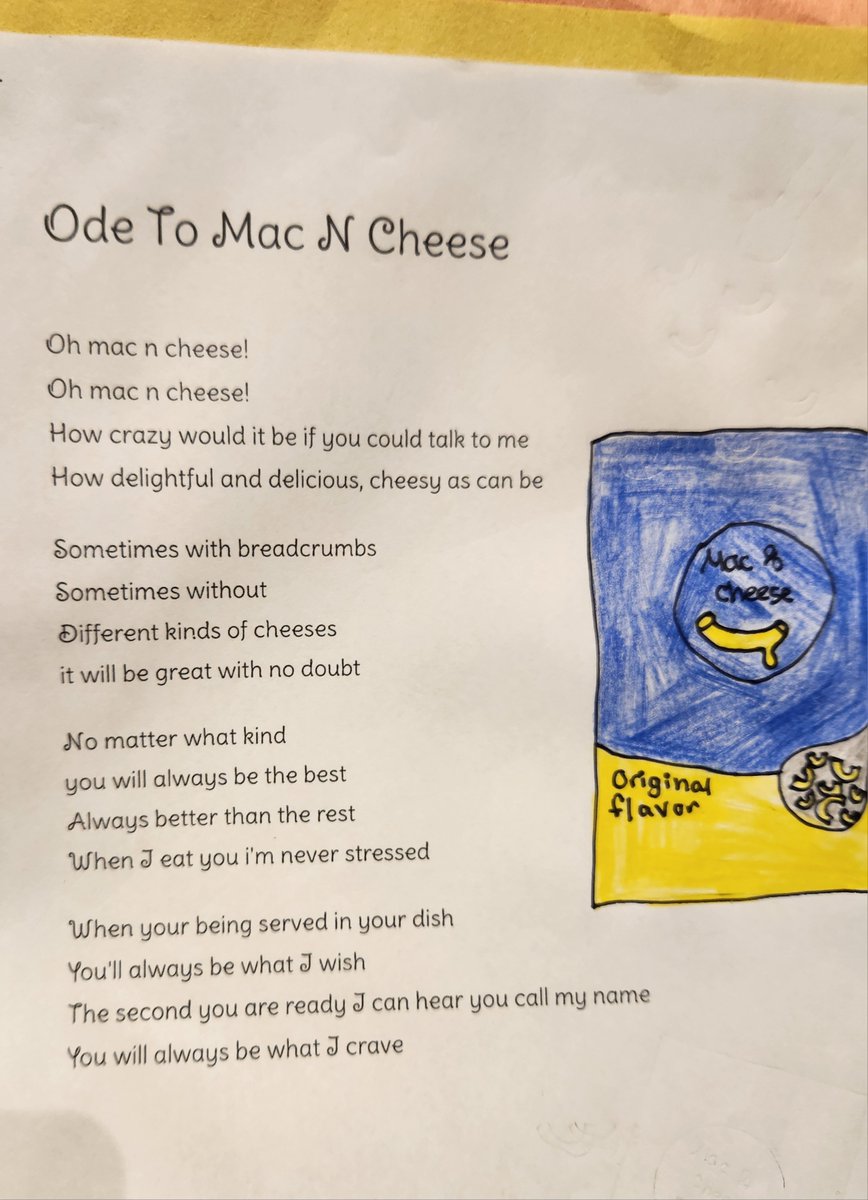 Ode To Mac N Cheese
Oh mac n cheese!
Oh mac n cheese!
How crazy would it be if you could talk to me
How delightful and delicious, cheesy as can be
Sometimes with breadcrumbs
Sometimes without
Different kinds of cheeses
it will be great with no doubt
No matter what kind
you will always be the best
Always better than the rest
When I eat you i'm never stressed
When your being served in your dish
You'll always be what I wish
The second you are ready I can hear you call my name
You will always be what I crave
Mac &
cheese
Original
flavor